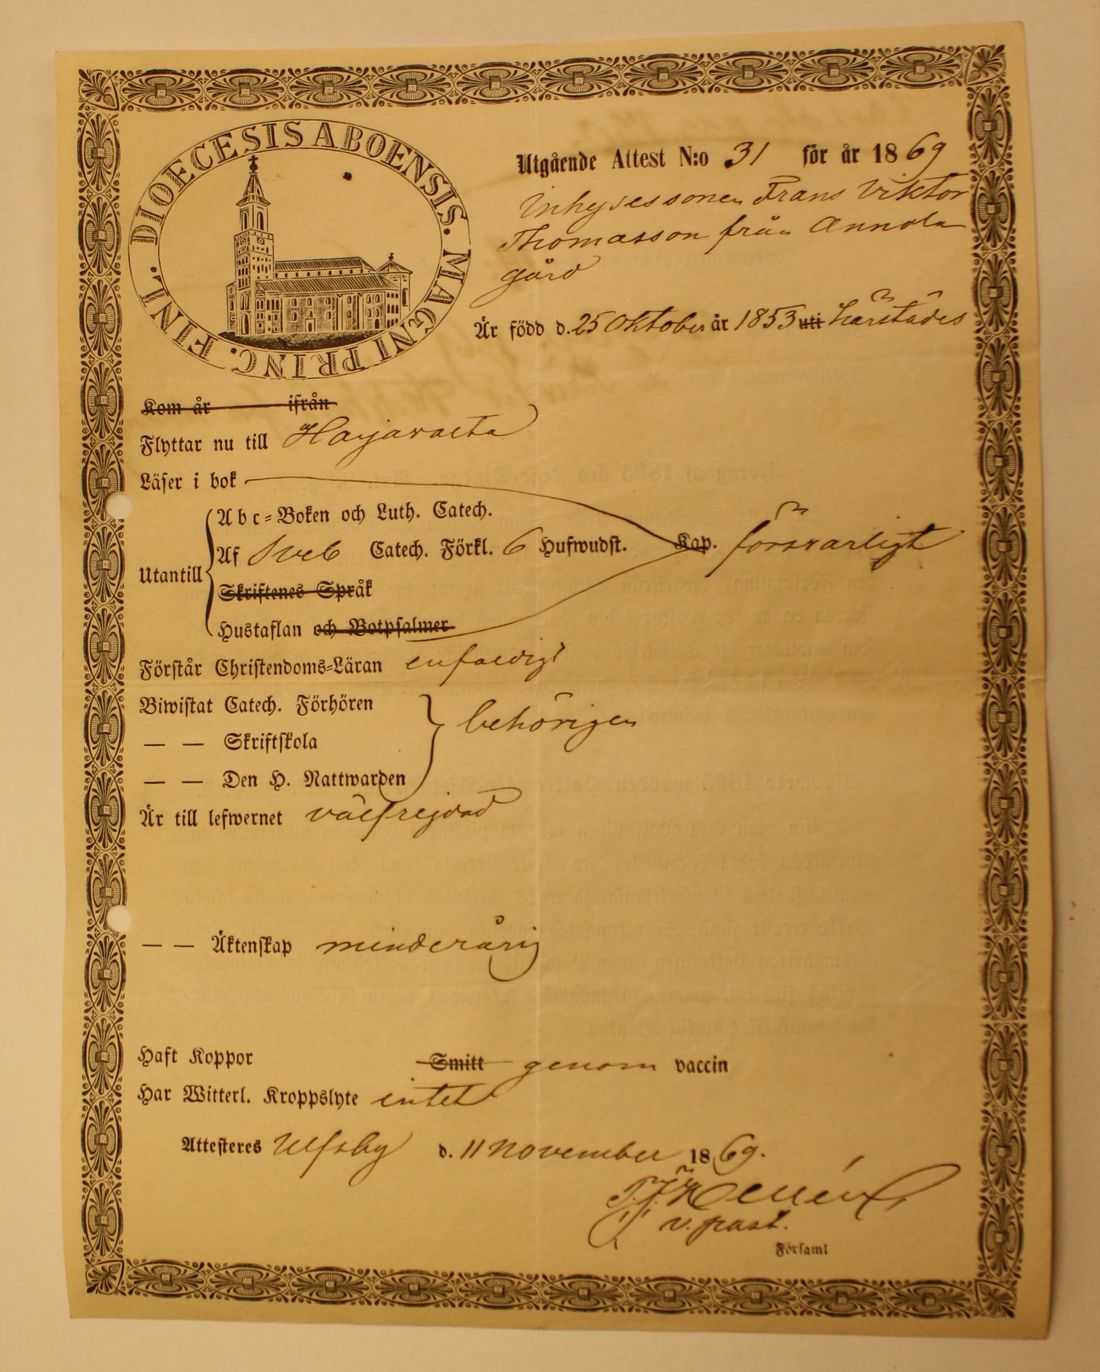 DIOECESIS ABOENSIS. MAGNI PRINC. FINL.
Utgående Attest N:o 31 för år 1869
Inhysessonen Frans Viktor
Thomasson från Annola
gård
Är född d. 25 Oktober år 1853 uti härstädes
Kom år ifrån
Flyttar nu till Harjavalta
Läser i bok
Abc-Boken och Luth. Catech.
Af Sveb Catech. Förkl. 6 Hufwudst. Kap. försvarligt
Utantill
Skriftenes Språk
Hustaflan och Botpsalmer
Förstår Christendoms-Läran enfaldigt
Biwistat Catech. Förhören
— — Skriftskola behörigen
— — Den H. Nattwarden
Är till lefwernet välfrejdad
— — Äktenskap minderårig
Haft Koppor Smitt genom vaccin
Har Witterl. Kroppslyte intet
Attesteres Ulfsby d. 11 November 1869.
Hellén
v. past.
Församl